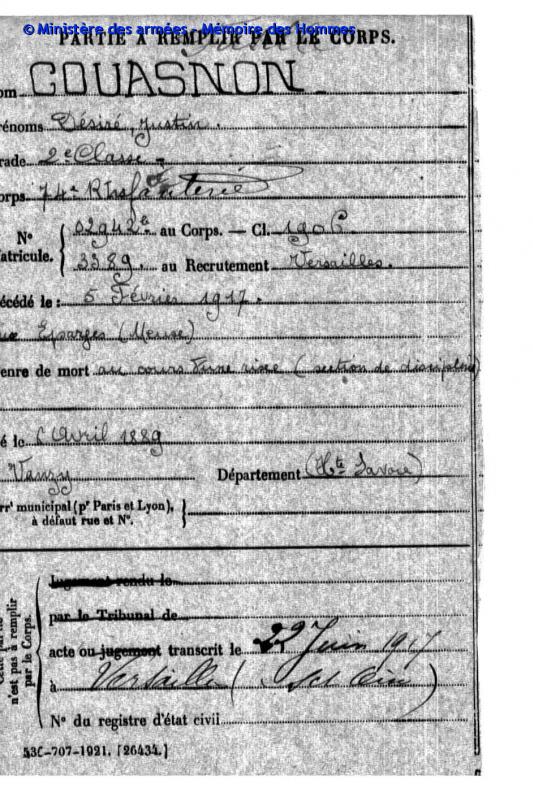 © Ministère des armées - Mémoire des Hommes
PARTIE A REMPLIR PAR LE CORPS.
om GOUASNON
rénoms Désiré, Justin.
rade 2e Classe
orps 74e R. Infanterie
N° Matricule. { 02942e au Corps. — Cl. 1906
3389. au Recrutement Versailles.
écédé le : 5 Février 1917.
aux Eparges (Meuse)
enre de mort au cours d'une rixe (section de discipline)
é le 6 Avril 1889
Vanzy Département (Hte Savoie)
rrt municipal (pr Paris et Lyon), }
à défaut rue et N°.
Cette partie n'est pas à remplir par le Corps.
Jugement rendu le
par le Tribunal de
acte ou jugement transcrit le 22 Juin 1917
à Versailles (Set Oise)
N° du registre d'état civil
53C-707-1921. [26434.]